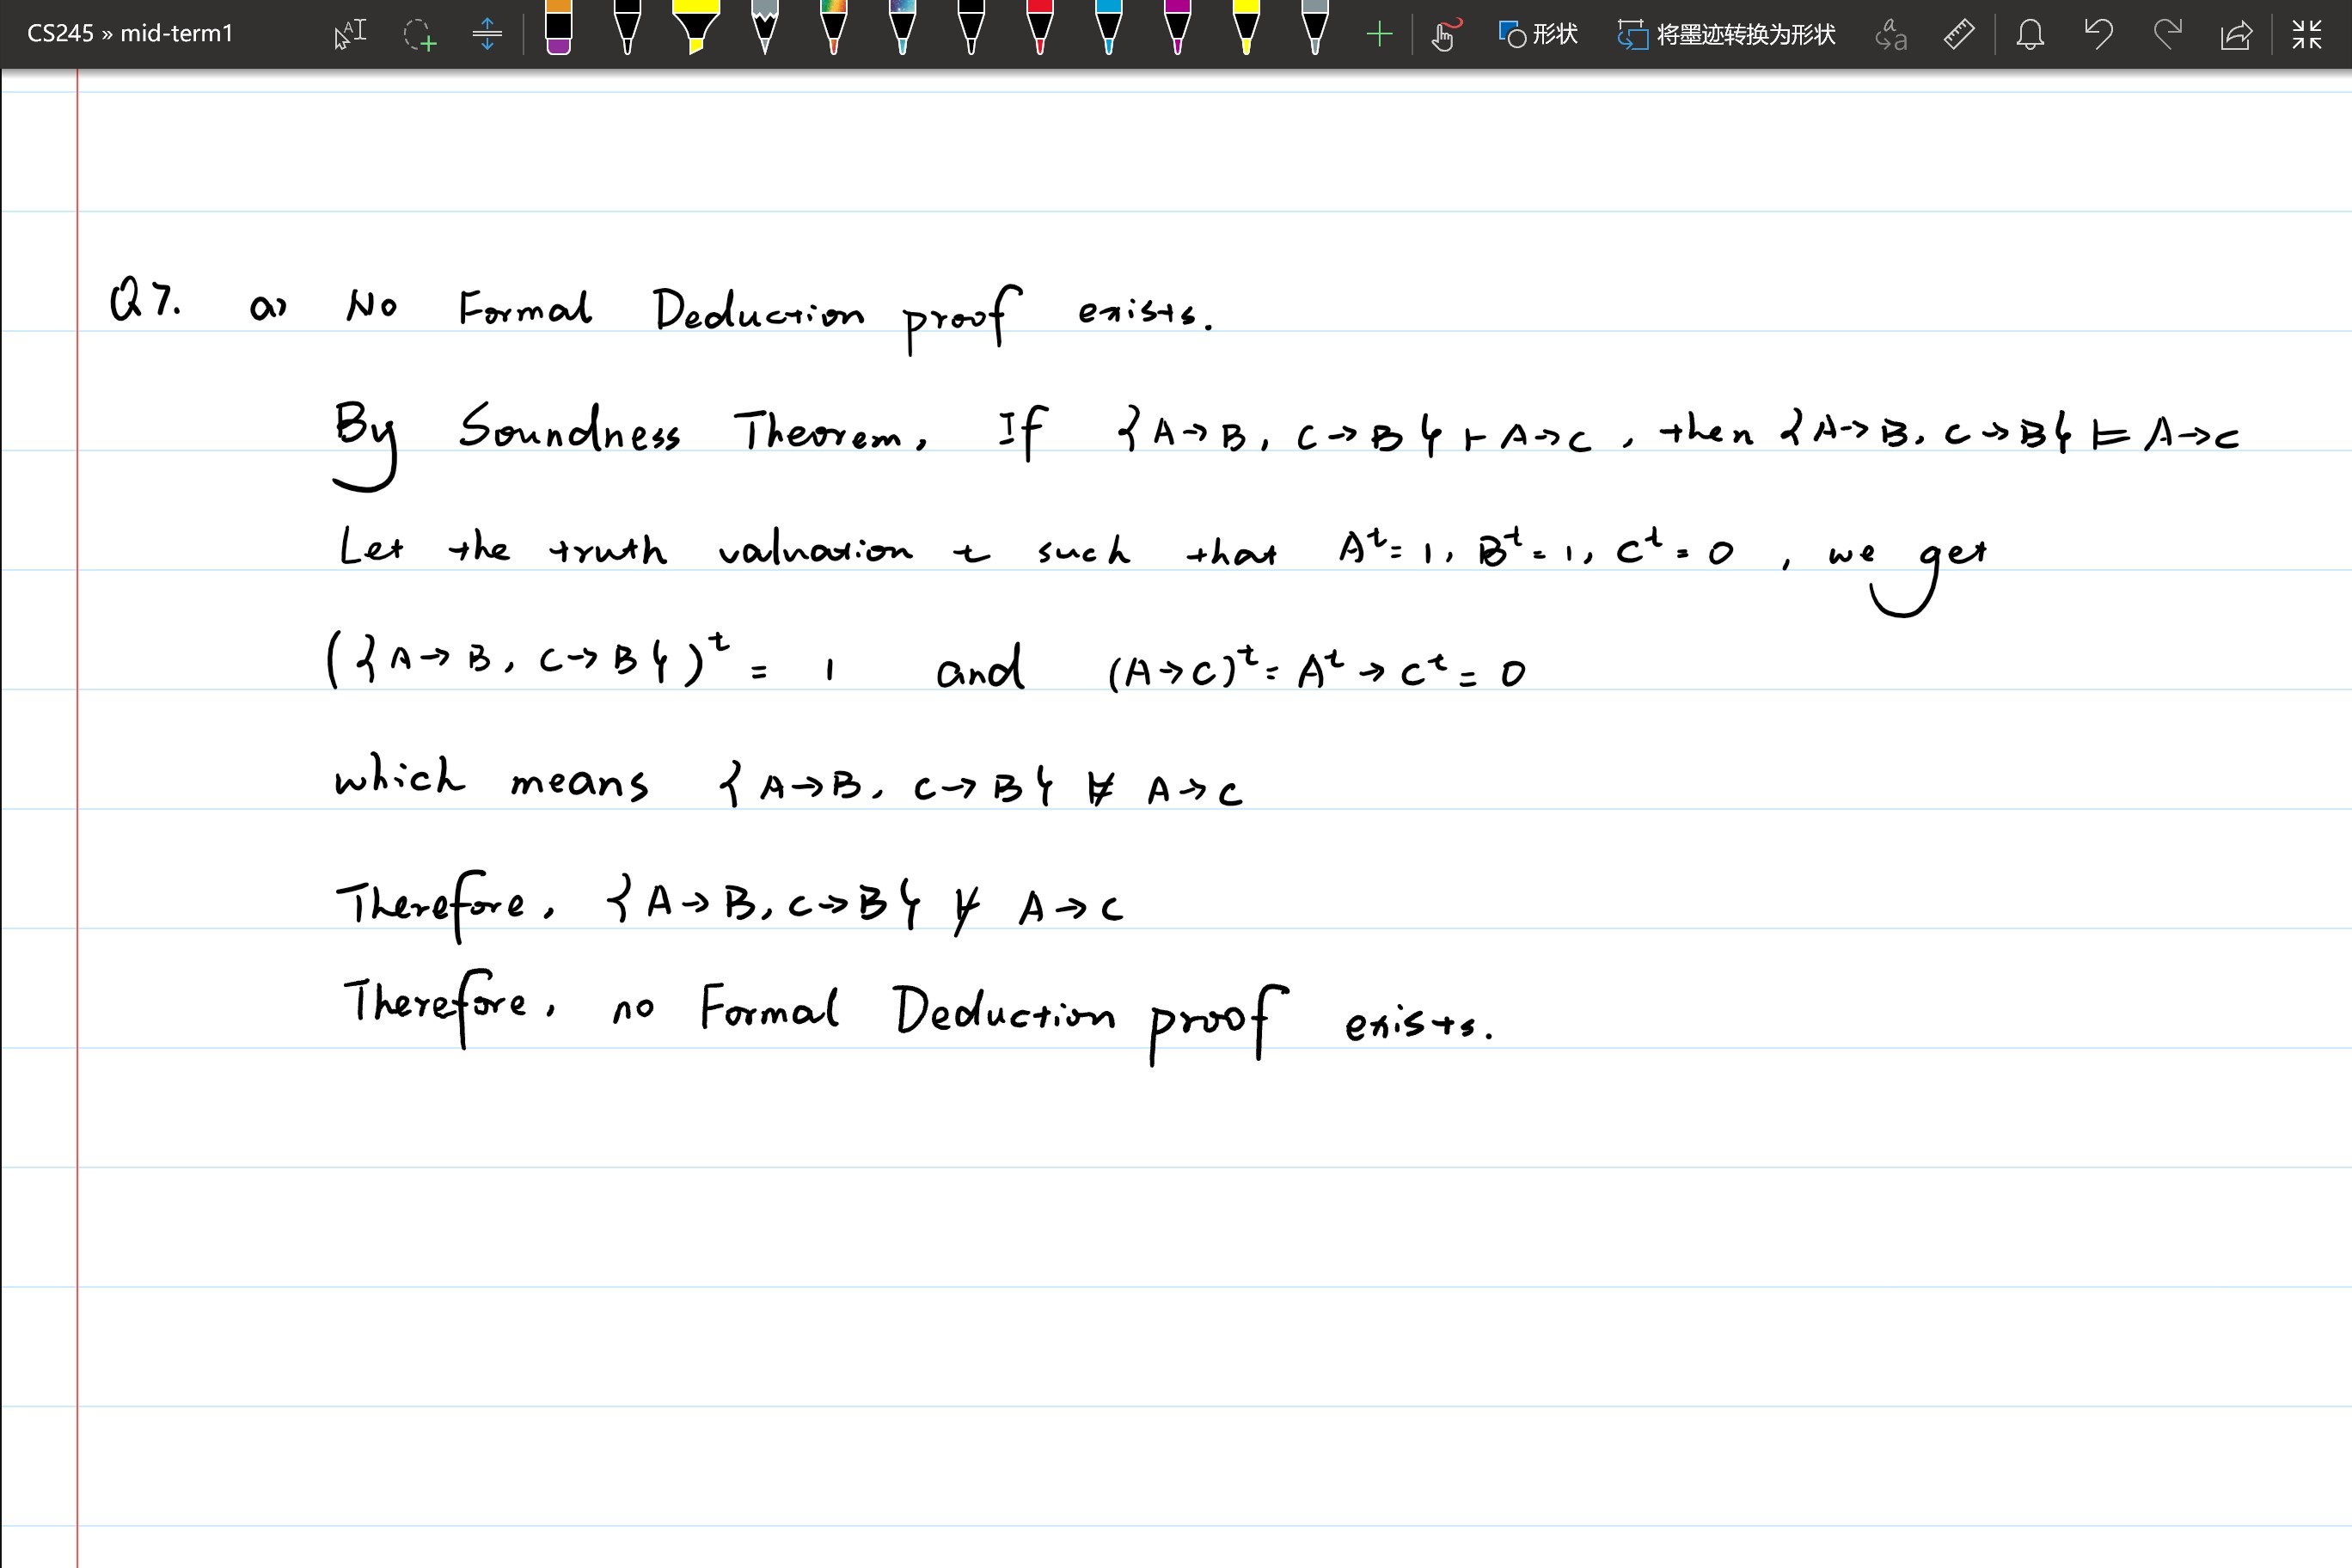 CS245 » mid-term1
形状
将墨迹转换为形状
Q7. a) No Formal Deduction proof exists.
By Soundness Theorem, If {A→B, C→B} ⊢ A→C, then {A→B, C→B} ⊨ A→C
Let the truth valuation t such that Aᵗ=1, Bᵗ=1, Cᵗ=0, we get
({A→B, C→B})ᵗ = 1 and (A→C)ᵗ = Aᵗ→Cᵗ = 0
which means {A→B, C→B} ⊭ A→C
Therefore, {A→B, C→B} ⊬ A→C
Therefore, no Formal Deduction proof exists.